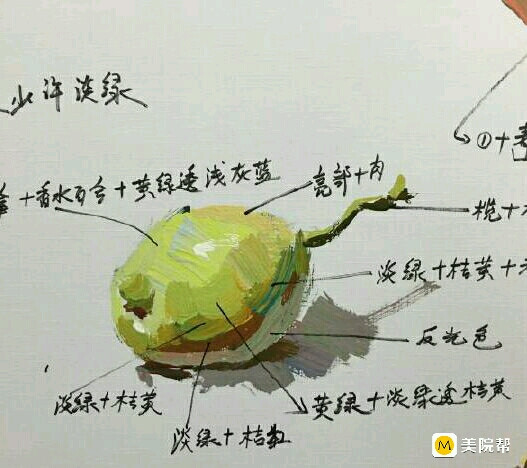 少许淡绿
①+
+香水百合+黄绿透浅灰蓝
亮部+肉
榄+
淡绿+桔黄+
反光色
淡绿+桔黄
黄绿+淡绿透桔黄
淡绿+桔红
M 美院帮